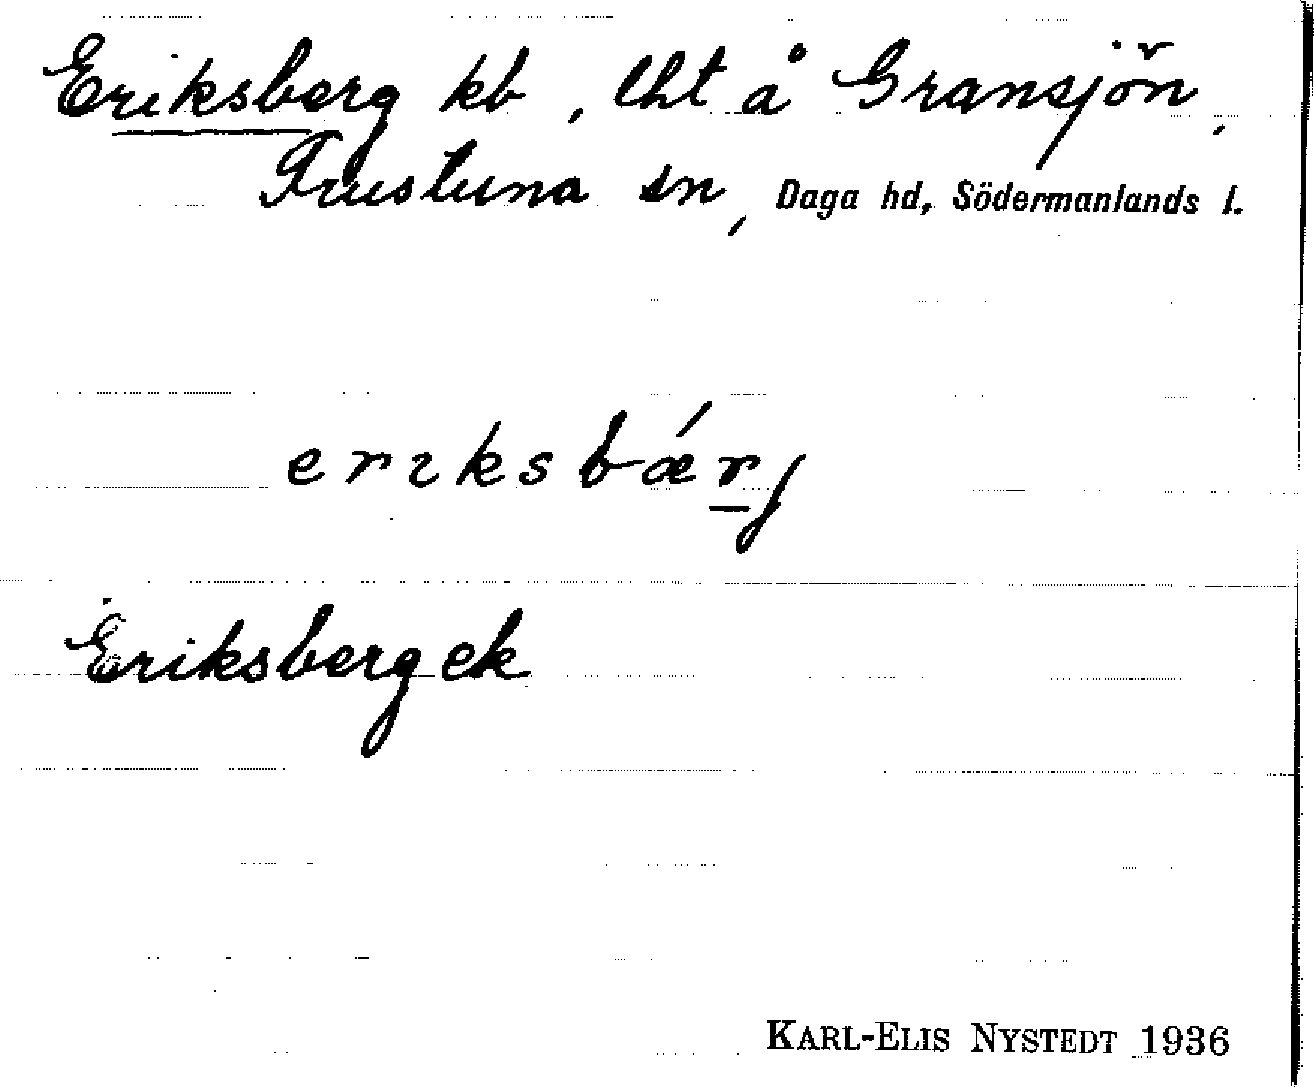 Eriksberg kb, lht å Gransjön,
Frustuna sn, Daga hd, Södermanlands l.
eriksbǽrj
Eriksberg ek
KARL-ELIS NYSTEDT 1936